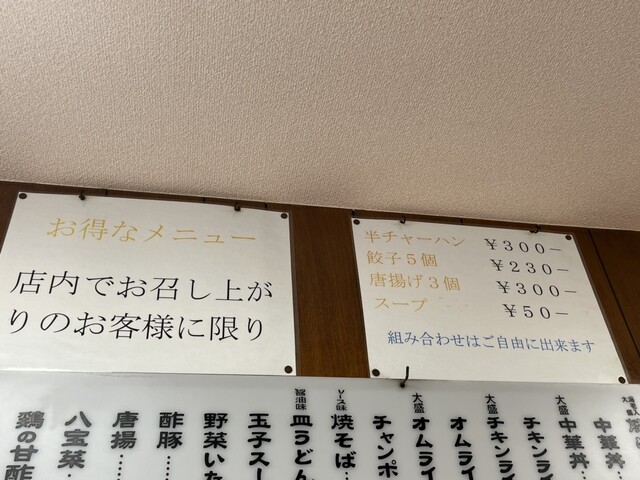 お得なメニュー
店内でお召し上が
りのお客様に限り
半チャーハン ￥３００－
餃子５個 ￥２３０－
唐揚げ３個 ￥３００－
スープ ￥５０－
組み合わせはご自由に出来ます
中華丼‥
大盛 中華丼‥
チキンライ
大盛 チキンライ
オムライ
大盛 オムライ
チャンポ
ソース味 焼そば‥
醤油味 皿うどん
玉子スー
野菜いた
酢豚‥
唐揚‥‥
八宝菜‥
鶏の甘酢